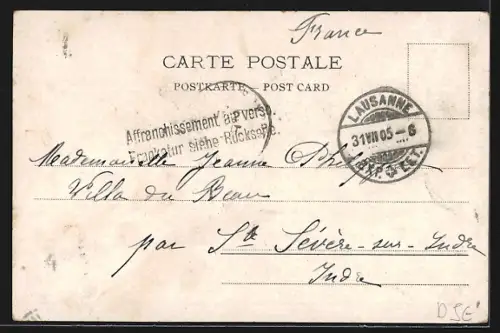 France
CARTE POSTALE
POSTKARTE — POST CARD
LAUSANNE
31 VII 05 – 6
EXP. LET.
Affranchissement au verso.
Frankatur siehe Rückseite.
Mademoiselle Jeanne
Villa du Beau
par Ste Sévère-sur-Indre
Indre